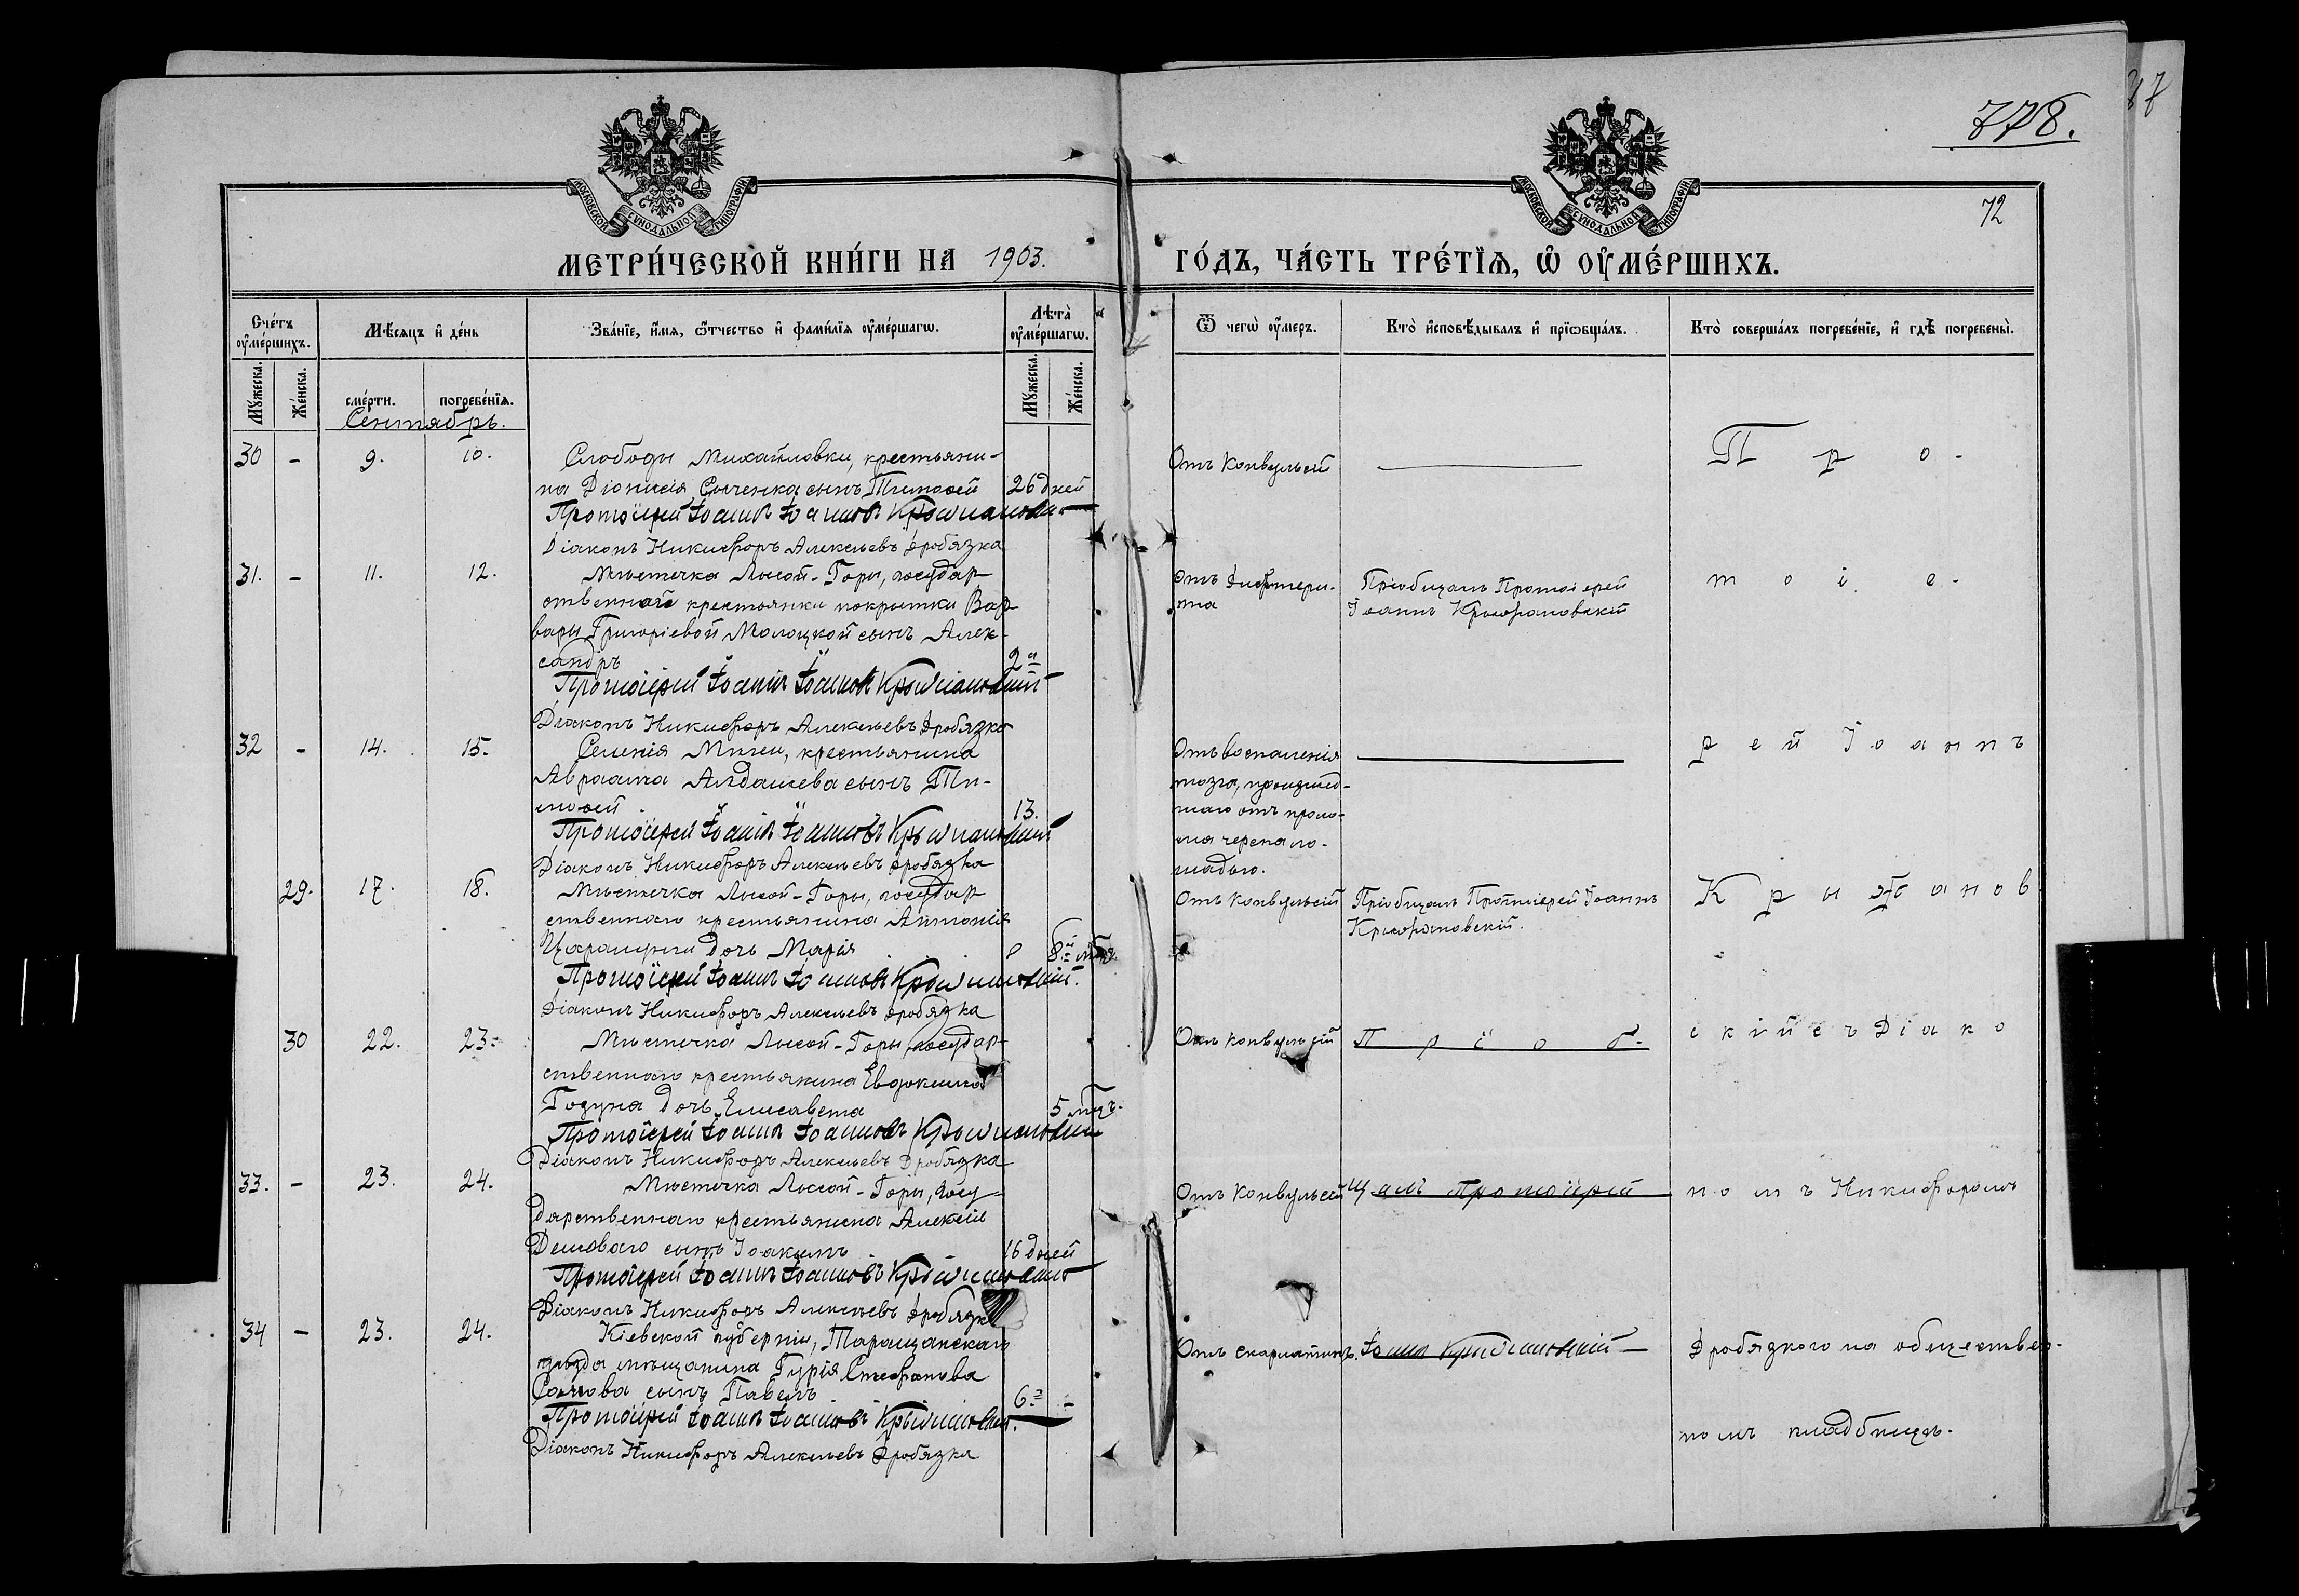 87
778.
72
МОСКОВСКОЙ СѴНОДАЛЬНОЙ ТИПОГРАФІИ
МОСКОВСКОЙ СѴНОДАЛЬНОЙ ТИПОГРАФІИ
МЕТРИ́ЧЕСКОЙ КНИ́ГИ НА 1903. ГО́ДЪ, ЧА́СТЬ ТРЕ́ТІѦ, Ѡ ОУМЕ́РШИХЪ.
Сче́тъ оуме́ршихъ.
Мѣ́сяцъ и де́нь
Зва́нїе, и́мѧ, ѿтчество и фами́лїѧ оуме́ршагѡ.
Лѣта̀ оуме́ршагѡ.
Ѿ чегѡ̀ оумеръ.
Кто̀ исповѣ́дывалъ и прїѡбща́лъ.
Кто̀ соверша́лъ погребе́нїе, и гдѣ̀ погребены̀.
Му́жеска.
Же́нска.
сме́рти.
погребе́нїѧ.
Му́жеска.
Же́нска.
Сентябрь.
30 - 9. 10. Слободы Михайловки, крестьяни-
на Діонисія сынъ Тимоѳей 26 дней
Протоіерей Іоаннъ Іоанновъ Крыжановскій
Діаконъ Никифоръ Алексѣевъ Дробязка
Отъ конвульсій
П р о -
31. - 11. 12. Мѣстечка Лысой-Горы, государ
ственной крестьянки покрытки Вар
вары Григоріевой Молоцкой сынъ Алек-
сандръ 2
Протоіерей Іоаннъ Іоанновъ Крыжановскій
Діаконъ Никифоръ Алексѣевъ Дробязка
Отъ дифтери-
та
Пріобщалъ Протоіерей
Іоаннъ Крыжановскій
т о і е -
32 - 14. 15. Селенія Мигеи, крестьянина
Авраама Алдашева сынъ Ти-
моѳей 13.
Протоіерей Іоаннъ Іоанновъ Крыжановскій
Діаконъ Никифоръ Алексѣевъ Дробязка
Отъ воспаленія
мозга, происшед-
шаго отъ проло-
ма черепа ло-
шадью.
р е й І о а н н ъ
29. 17. 18. Мѣстечка Лысой-Горы, государ
ственнаго крестьянина Антонія
дочь Марія 8
Протоіерей Іоаннъ Іоанновъ Крыжановскій.
Діаконъ Никифоръ Алексѣевъ Дробязка
Отъ конвульсій
Пріобщалъ Протоіерей Іоаннъ
Крыжановскій.
К р ы ж а н о в
30 22. 23. Мѣстечка Лысой-Горы, государ-
ственнаго крестьянина Евдокима
Годуна дочь Елисавета 5 мѣц.
Протоіерей Іоаннъ Іоанновъ Крыжановскій
Діаконъ Никифоръ Алексѣевъ Дробязка
Отъ конвульсій
П р і о б -
с к і й с ъ Д і а к о
33. - 23. 24. Мѣстечка Лысой-Горы, госу-
дарственнаго крестьянина Алексія
сынъ Іоакимъ 16 дней
Протоіерей Іоаннъ Іоанновъ Крыжановскій
Діаконъ Никифоръ Алексѣевъ Дробязка
Отъ конвульсій
щалъ Протоіерей
н о м ъ Никифоромъ
34 - 23. 24. Кіевской губерніи, Таращанскаго
уѣзда мѣщанина Гурія Стефанова
сынъ Павелъ 6
Протоіерей Іоаннъ Іоанновъ Крыжановскій.
Діаконъ Никифоръ Алексѣевъ Дробязка
Отъ скарлатины.
Іоаннъ Крыжановскій
Дробязкого на обществен-
номъ кладбищѣ.